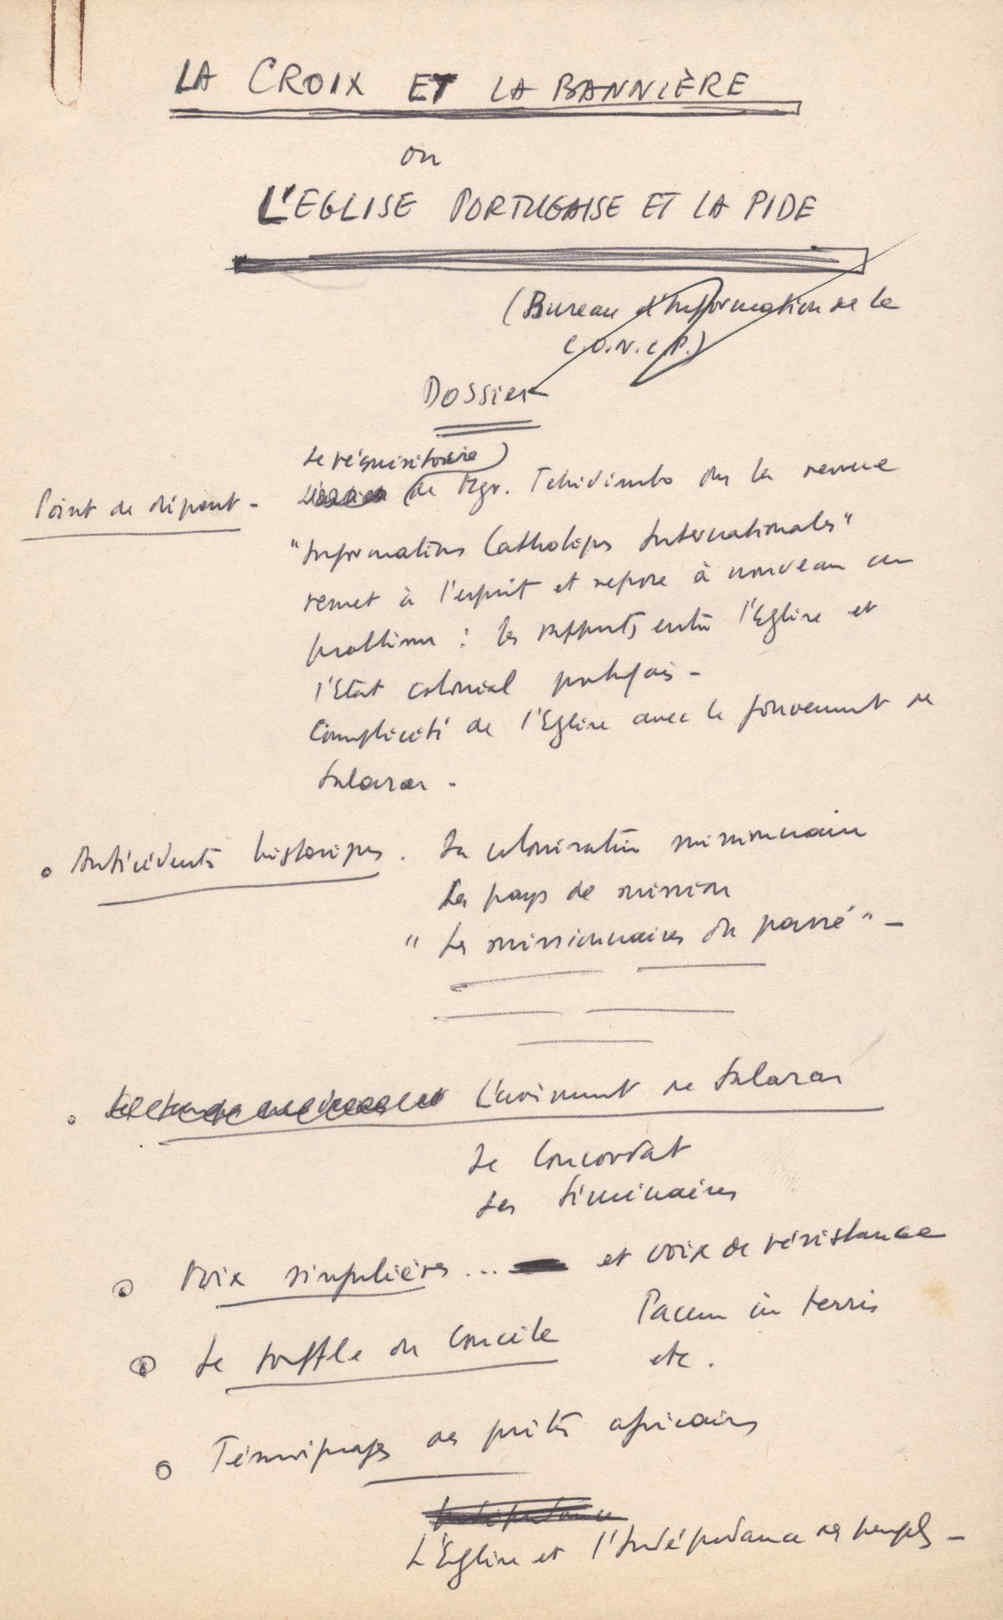 LA CROIX ET LA BANNIÈRE
ou
L'EGLISE PORTUGAISE ET LA PIDE
(Bureau d'Information de la
C.O.N.C.P.)
Dossier
Le réquisitoire
Point de départ - de Mgr. Tchidimbo ds la revue
"Informations Catholiques Internationales"
remet à l'esprit et repose à nouveau un
problème : les rapports entre l'Eglise et
l'Etat colonial portugais -
Complicité de l'Eglise avec le gouvernement de
Salazar -
Antécédents historiques . La colonisation missionnaire
Les pays de mission
" Les missionnaires du passé " -
L'avènement de Salazar
Le Concordat
Les Séminaires
Voix singulières ... et voix de résistance
Le souffle du Concile Pacem in terris
etc .
Témoignages des prêtres africains
L'Eglise et l'Indépendance des peuples -